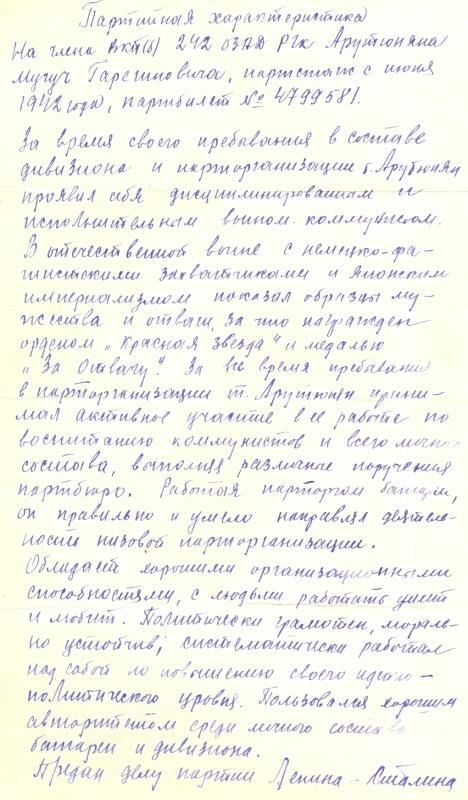 Партийная характеристика
На члена ВКП(б) 242 ОЗАД РГК Арутюняна
Мугуч Гарегиновича, партстаж с июня
1942 года, партбилет № 4799581.
За время своего пребывания в составе
дивизиона и парторганизации т. Арутюнян
проявил себя дисциплинированным и
исполнительным воином-коммунистом.
В отечественной войне с немецко-фа-
шистскими захватчиками и японским
империализмом показал образцы му-
жества и отваги, за что награжден
орденом „Красная Звезда" и медалью
„За Отвагу". За все время пребывания
в парторганизации т. Арутюнян прини-
мал активное участие в ее работе по
воспитанию коммунистов и всего личного
состава, выполняя различные поручения
партбюро. Работая парторгом батареи,
он правильно и умело направлял деятель-
ность низовой парторганизации.
Обладает хорошими организационными
способностями, с людьми работать умеет
и любит. Политически грамотен, мораль-
но устойчив, систематически работал
над собой по повышению своего идейно-
политического уровня. Пользовался хорошим
авторитетом среди личного состава
батареи и дивизиона.
Предан делу партии Ленина - Сталина